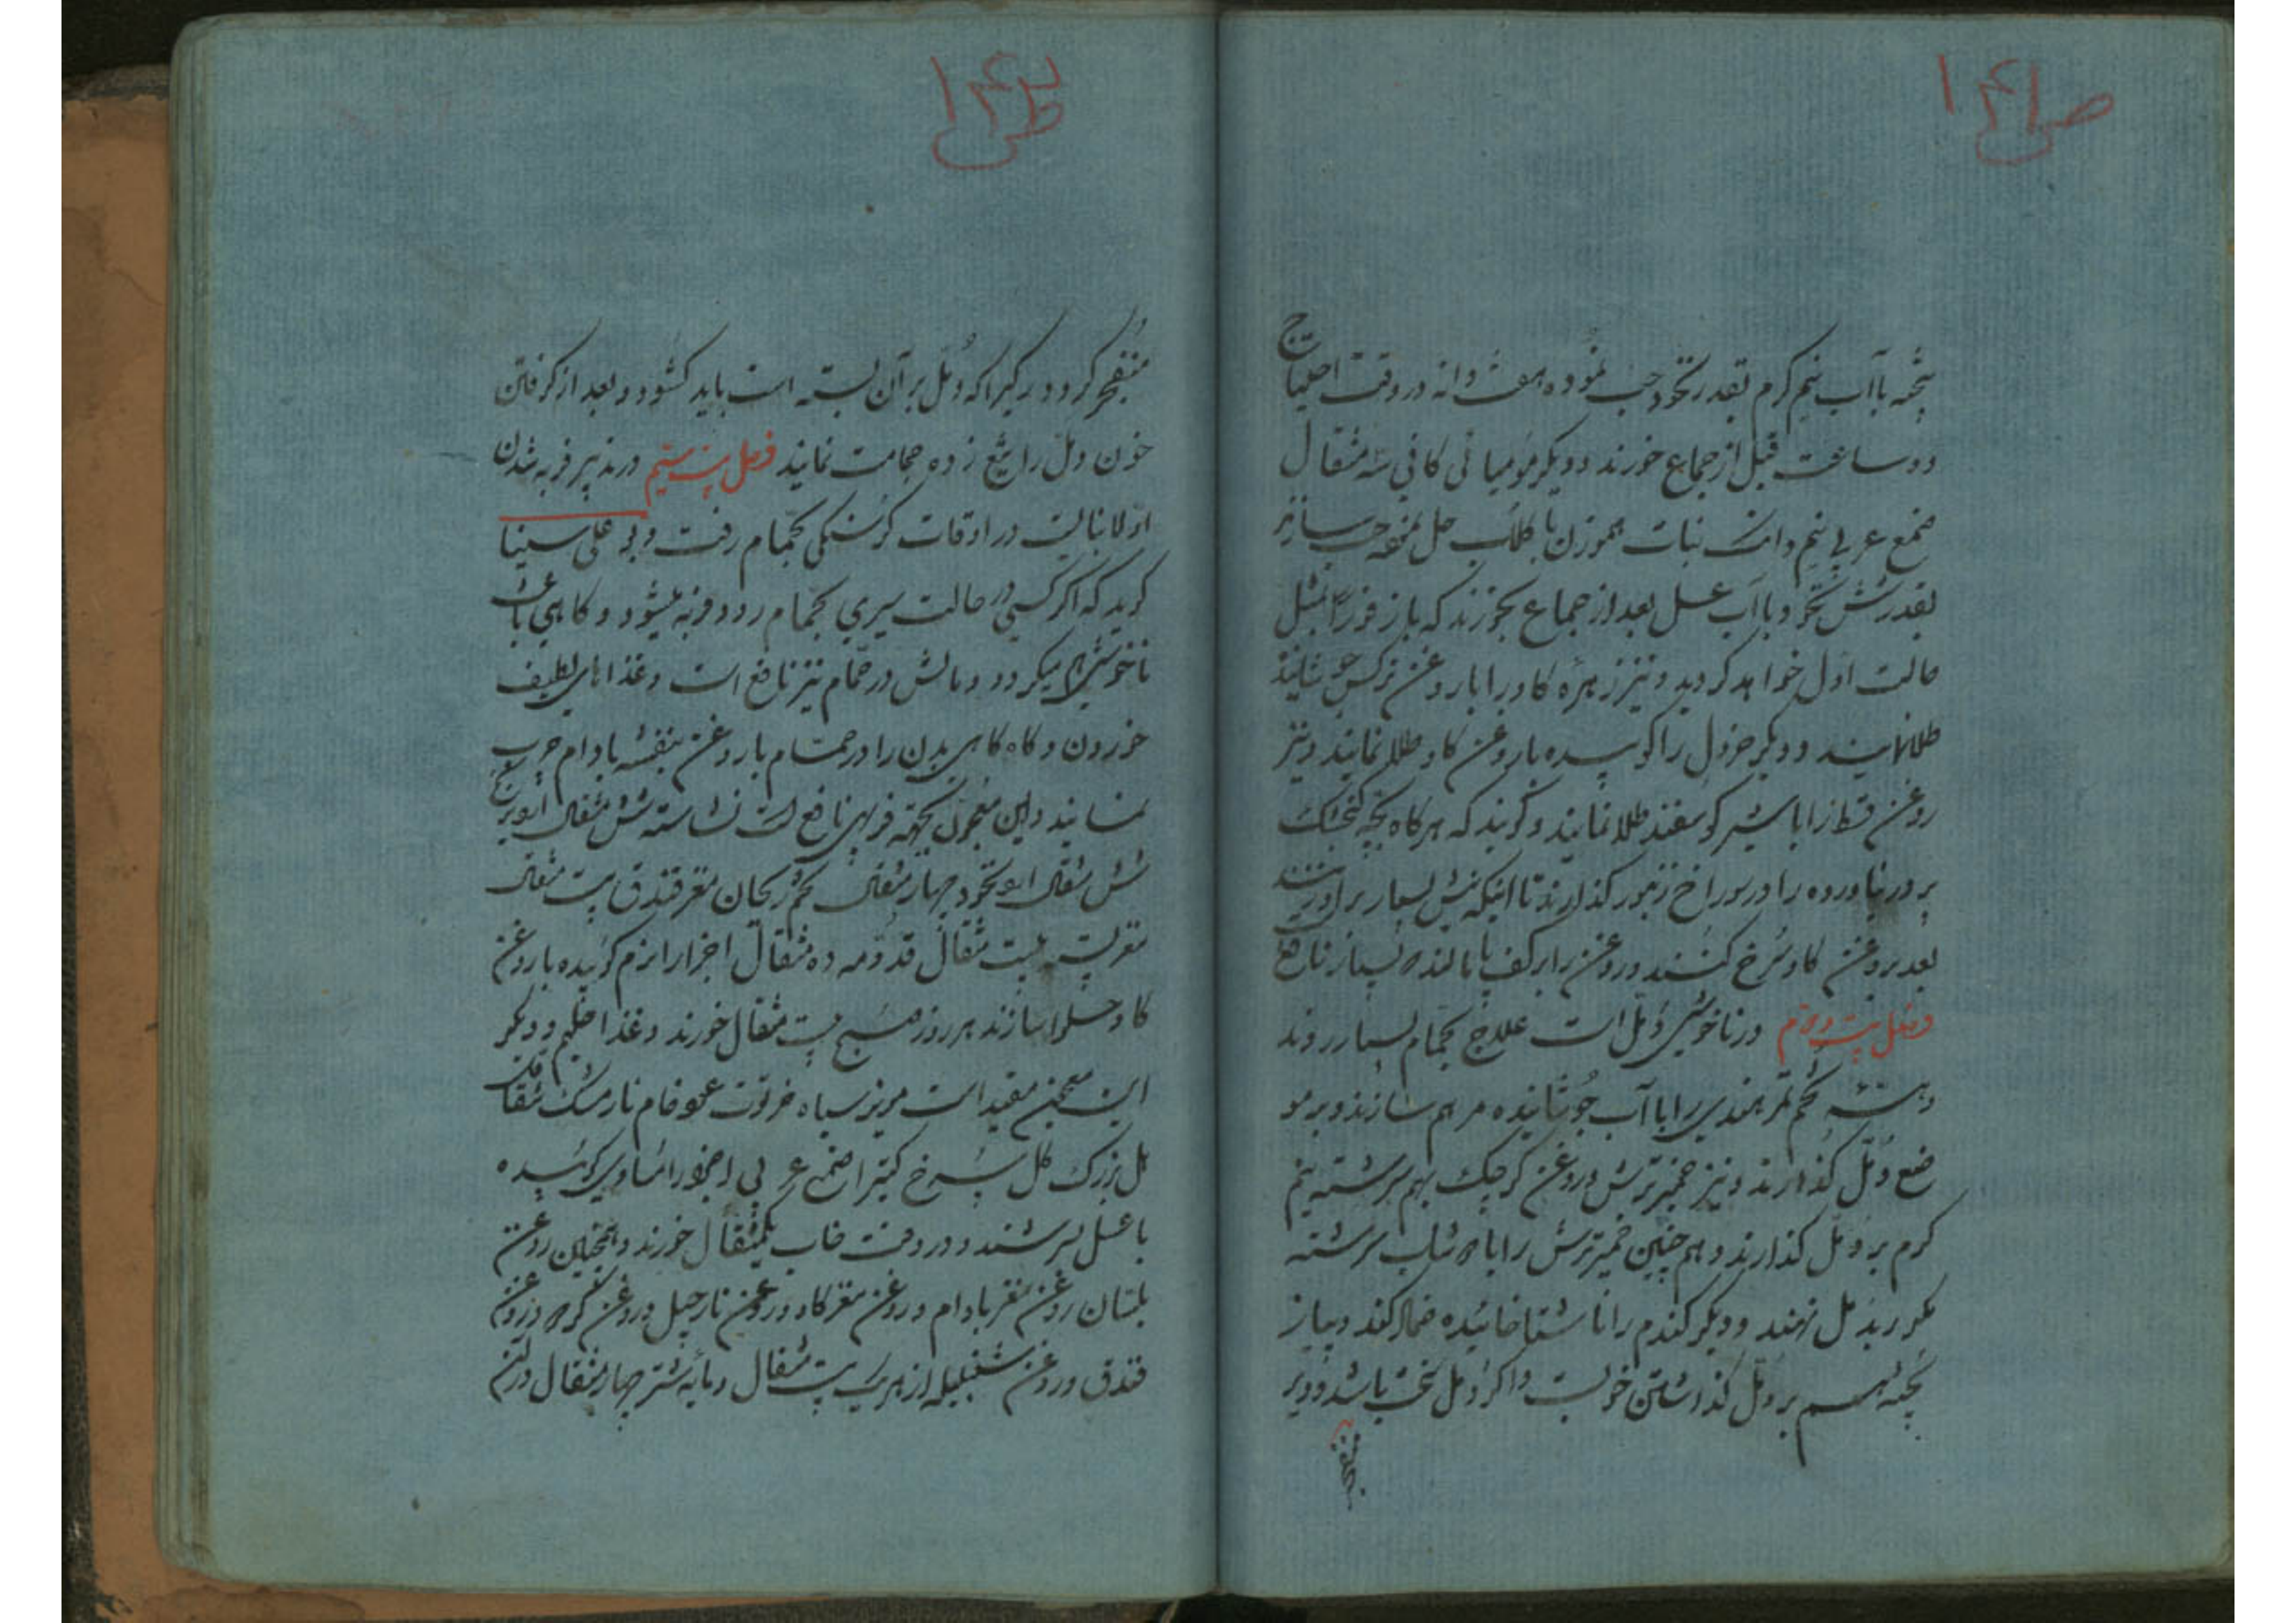 ص ۱۴۱
پخته باآب نیم کرم بقدر نخود حب نموده هفت دانه در وقت احتیاج
دو ساعت قبل از جماع خورند و دیکر مومیائی کانی سه مثقال
صمغ عربی نیم دانک نبات هموزن با کلاب حل نموده حب سازند
بقدر شش نخود و باآب عسل بعد از جماع بخورند که باز فوراً بمثل
حالت اول خواهد کردید و نیز زهره کاو را با روغن نرکس جوشانیده
طلا نمایند و دیکر خردل را کوبیده با روغن کاو طلا نمایند و نیز
روغن قسط را با شیر کوسفند طلا نمایند و کویند که هرکاه بچه کنجشک
پر در نیاورده را در سوراخ زنبور کذارند تا اینکه نیش بسیار بر او زنند
بعد بروغن کاو سرخ کنند و روغن را بر کف پا مالند بسیار نافع
فصل بیست و دوم در ناخوشی دمل است علاج بحمام بسیار روند
و هسته تخم تمر هندی را باآب جوشانیده مرهم سازند و بر مو
ضع دمل کذارند و نیز خمیر ترش و روغن کرچک بهم سرشته نیم
کرم بر دمل کذارند و هم چنین خمیر ترش را با دوشاب سرشته
مکرر بدمل نهند و دیکر کندم را ناشتا خائیده ضماد کنند و پیاز
پخته هم بر دمل کذاشتن خوبست و اکر دمل سخت باشد و دیر
منفجر
ص ۱۴۲
منفجر کردد رکیرا که دمل بر آن بسته است باید کشود و بعد از کرفتن
خون دمل را تیغ زده حجامت نمایند فصل بیست سیم در تدبیر فربه شدن
اولا نبایست در اوقات کرسنکی بحمام رفت و بو علی سینا
کوید که اکر کسی در حالت سیری بحمام رود فربه میشود و کاهی باعث
ناخوشی میکردد و مالش در حمام نیز نافع است و غذاهای لطیف
خوردن و کاه کاهی بدن را در حمام با روغن بنفشه بادام چرب
نمایند و این معجون بجهة فربهی نافع است نشاسته شش مثقال آرد برنج
شش مثقال آرد نخود چهار مثقال تخم ریحان مغز فندق بیست مثقال
مغز پسته بیست مثقال قدومه ده مثقال اجزا را نرم کوبیده با روغن
کاو حلوا سازند هر روز صبح بیست مثقال خورند و غذا حلیم و دیکر
این معجون مفید است مویز سیاه خرنوت عود خام نارمشک شقاقل
کل بزرک کل سرخ کتیرا صمغ عربی اجزا را مساوی کوبیده
با عسل بسرشند و در وقت خاب یکمثقال خورند و همچنین روغن
بلسان روغن مغز بادام و روغن مغز کاو و روغن نارجیل و روغن کره و روغن
فندق و روغن شنبلیله از هر یک بیست مثقال و مایه شتر چهار مثقال در آن